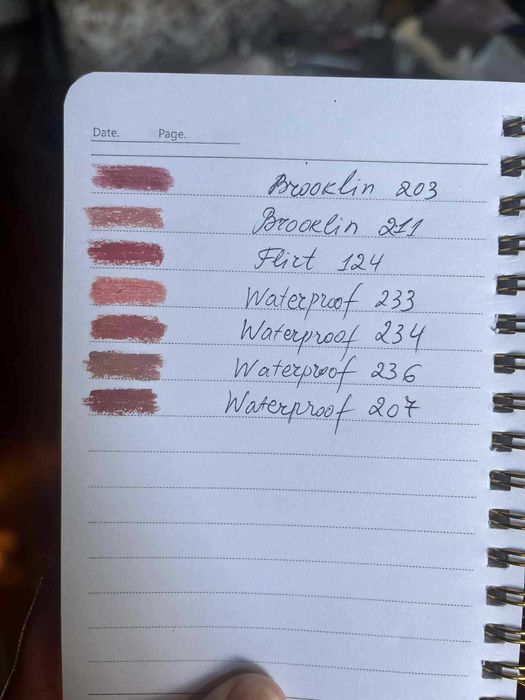 Date. Page.
Brooklin 203
Brooklin 211
Flirt 124
Waterproof 233
Waterproof 234
Waterproof 236
Waterproof 207